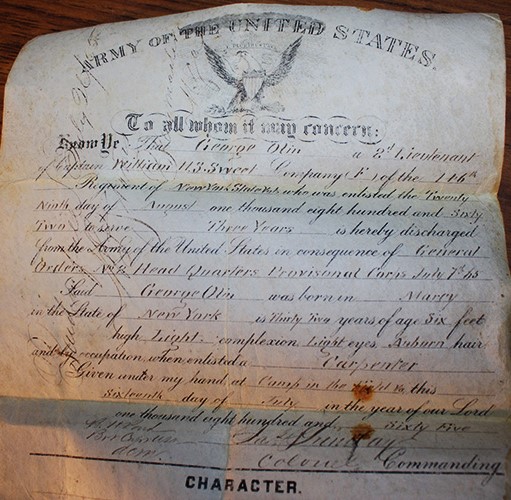 ARMY OF THE UNITED STATES.
To all whom it may concern:
Know Ye, That George Olin a 2d Lieutenant
of Captain William H.S. Sweet Company (F,) of the 146th
Regiment of New York State Vols. who was enlisted the Twenty
Ninth day of August one thousand eight hundred and Sixty
Two to serve Three Years is hereby discharged
from the Army of the United States in consequence of General
Orders No 8 Head Quarters Provisional Corps July 7th 65
Said George Olin was born in Marcy
in the State of New York is Thirty Two years of age Six feet
high Light complexion Light eyes Auburn hair
and by occupation, when enlisted a Carpenter
Given under my hand, at Camp in the this
Sixteenth day of July in the year of our Lord
one thousand eight hundred and Sixty Five
Colonel Commanding
CHARACTER.